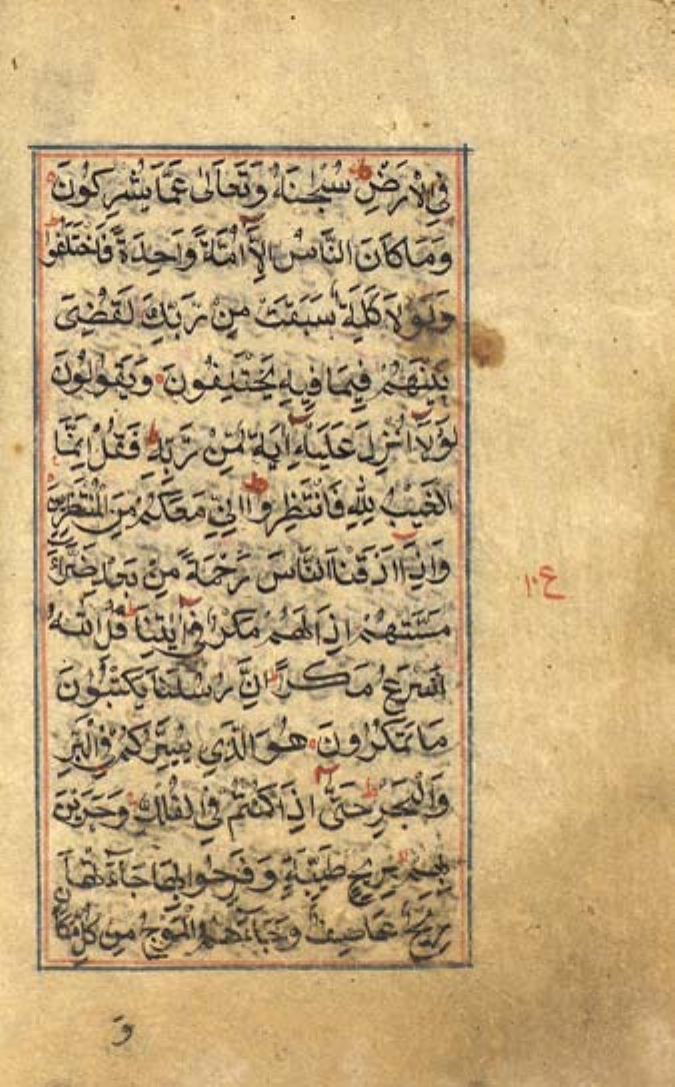 فِي الْاَرْضِ ط سُبْحٰنَهٗ وَتَعَالٰى عَمَّا يُشْرِكُوْنَ
وَمَا كَانَ النَّاسُ اِلَّا اُمَّةً وَّاحِدَةً فَاخْتَلَفُوْا ط
وَلَوْلَا كَلِمَةٌ سَبَقَتْ مِنْ رَّبِّكَ لَقُضِيَ
بَيْنَهُمْ فِيْمَا فِيْهِ يَخْتَلِفُوْنَ وَيَقُوْلُوْنَ
لَوْلَا اُنْزِلَ عَلَيْهِ اٰيَةٌ مِّنْ رَّبِّهٖ ط فَقُلْ اِنَّمَا
الْغَيْبُ لِلّٰهِ فَانْتَظِرُوْا ط اِنِّيْ مَعَكُمْ مِنَ الْمُنْتَظِرِيْنَ
وَاِذَا اَذَقْنَا النَّاسَ رَحْمَةً مِنْ بَعْدِ ضَرَّاءَ
مَسَّتْهُمْ اِذَا لَهُمْ مَكْرٌ فِيْ اٰيٰتِنَا ط قُلِ اللّٰهُ
اَسْرَعُ مَكْرًا ط اِنَّ رُسُلَنَا يَكْتُبُوْنَ
مَا تَمْكُرُوْنَ هُوَ الَّذِيْ يُسَيِّرُكُمْ فِي الْبَرِّ
وَالْبَحْرِ ط حَتّٰى اِذَا كُنْتُمْ فِي الْفُلْكِ وَجَرَيْنَ
بِهِمْ بِرِيْحٍ طَيِّبَةٍ وَّفَرِحُوْا بِهَا جَاءَتْهَا
رِيْحٌ عَاصِفٌ وَّجَاءَهُمُ الْمَوْجُ مِنْ كُلِّ مَكَانٍ
وَ